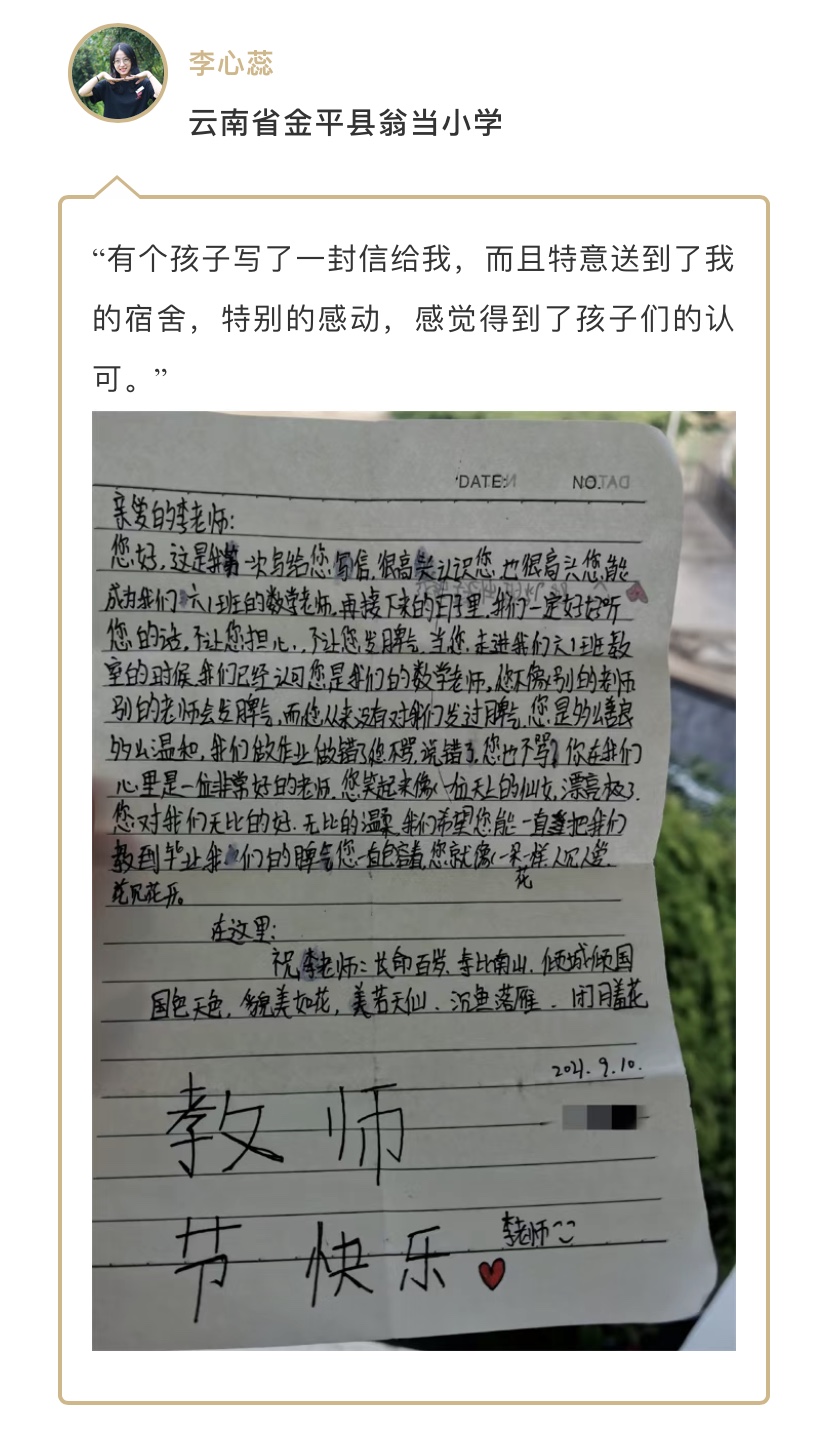 李心蕊
云南省金平县翁当小学
“有个孩子写了一封信给我，而且特意送到了我
的宿舍，特别的感动，感觉得到了孩子们的认
可。”
DATE: NO.
亲爱的李老师:
您好,这是我第一次写给您写信,很高兴认识您,也很高兴您能
成为我们六1班的数学老师,再接下来的日子里,我们一定好好听
您的话,不让您担心,不让您发脾气,当您走进我们六1班教
室的时候,我们已经认可您是我们的数学老师,您不像别的老师
别的老师会发脾气,而您从来没有对我们发过脾气,您是多么善良
多么温和,我们做作业做错了您不骂,说错了,您也不骂,你在我们
心里是一位非常好的老师,您笑起来像一位天上的仙女,漂亮极了.
您对我们无比的好.无比的温柔,我们希望您能一直把我们
教到毕业,我们的脾气您一直包容着,您就像一朵花一样人见人爱.
花见花开。
在这里:
祝李老师:长命百岁.寿比南山.倾城倾国
国色天色,貌美如花,美若天仙.沉鱼落雁.闭月羞花
2021.9.10.
教师
节快乐
李老师